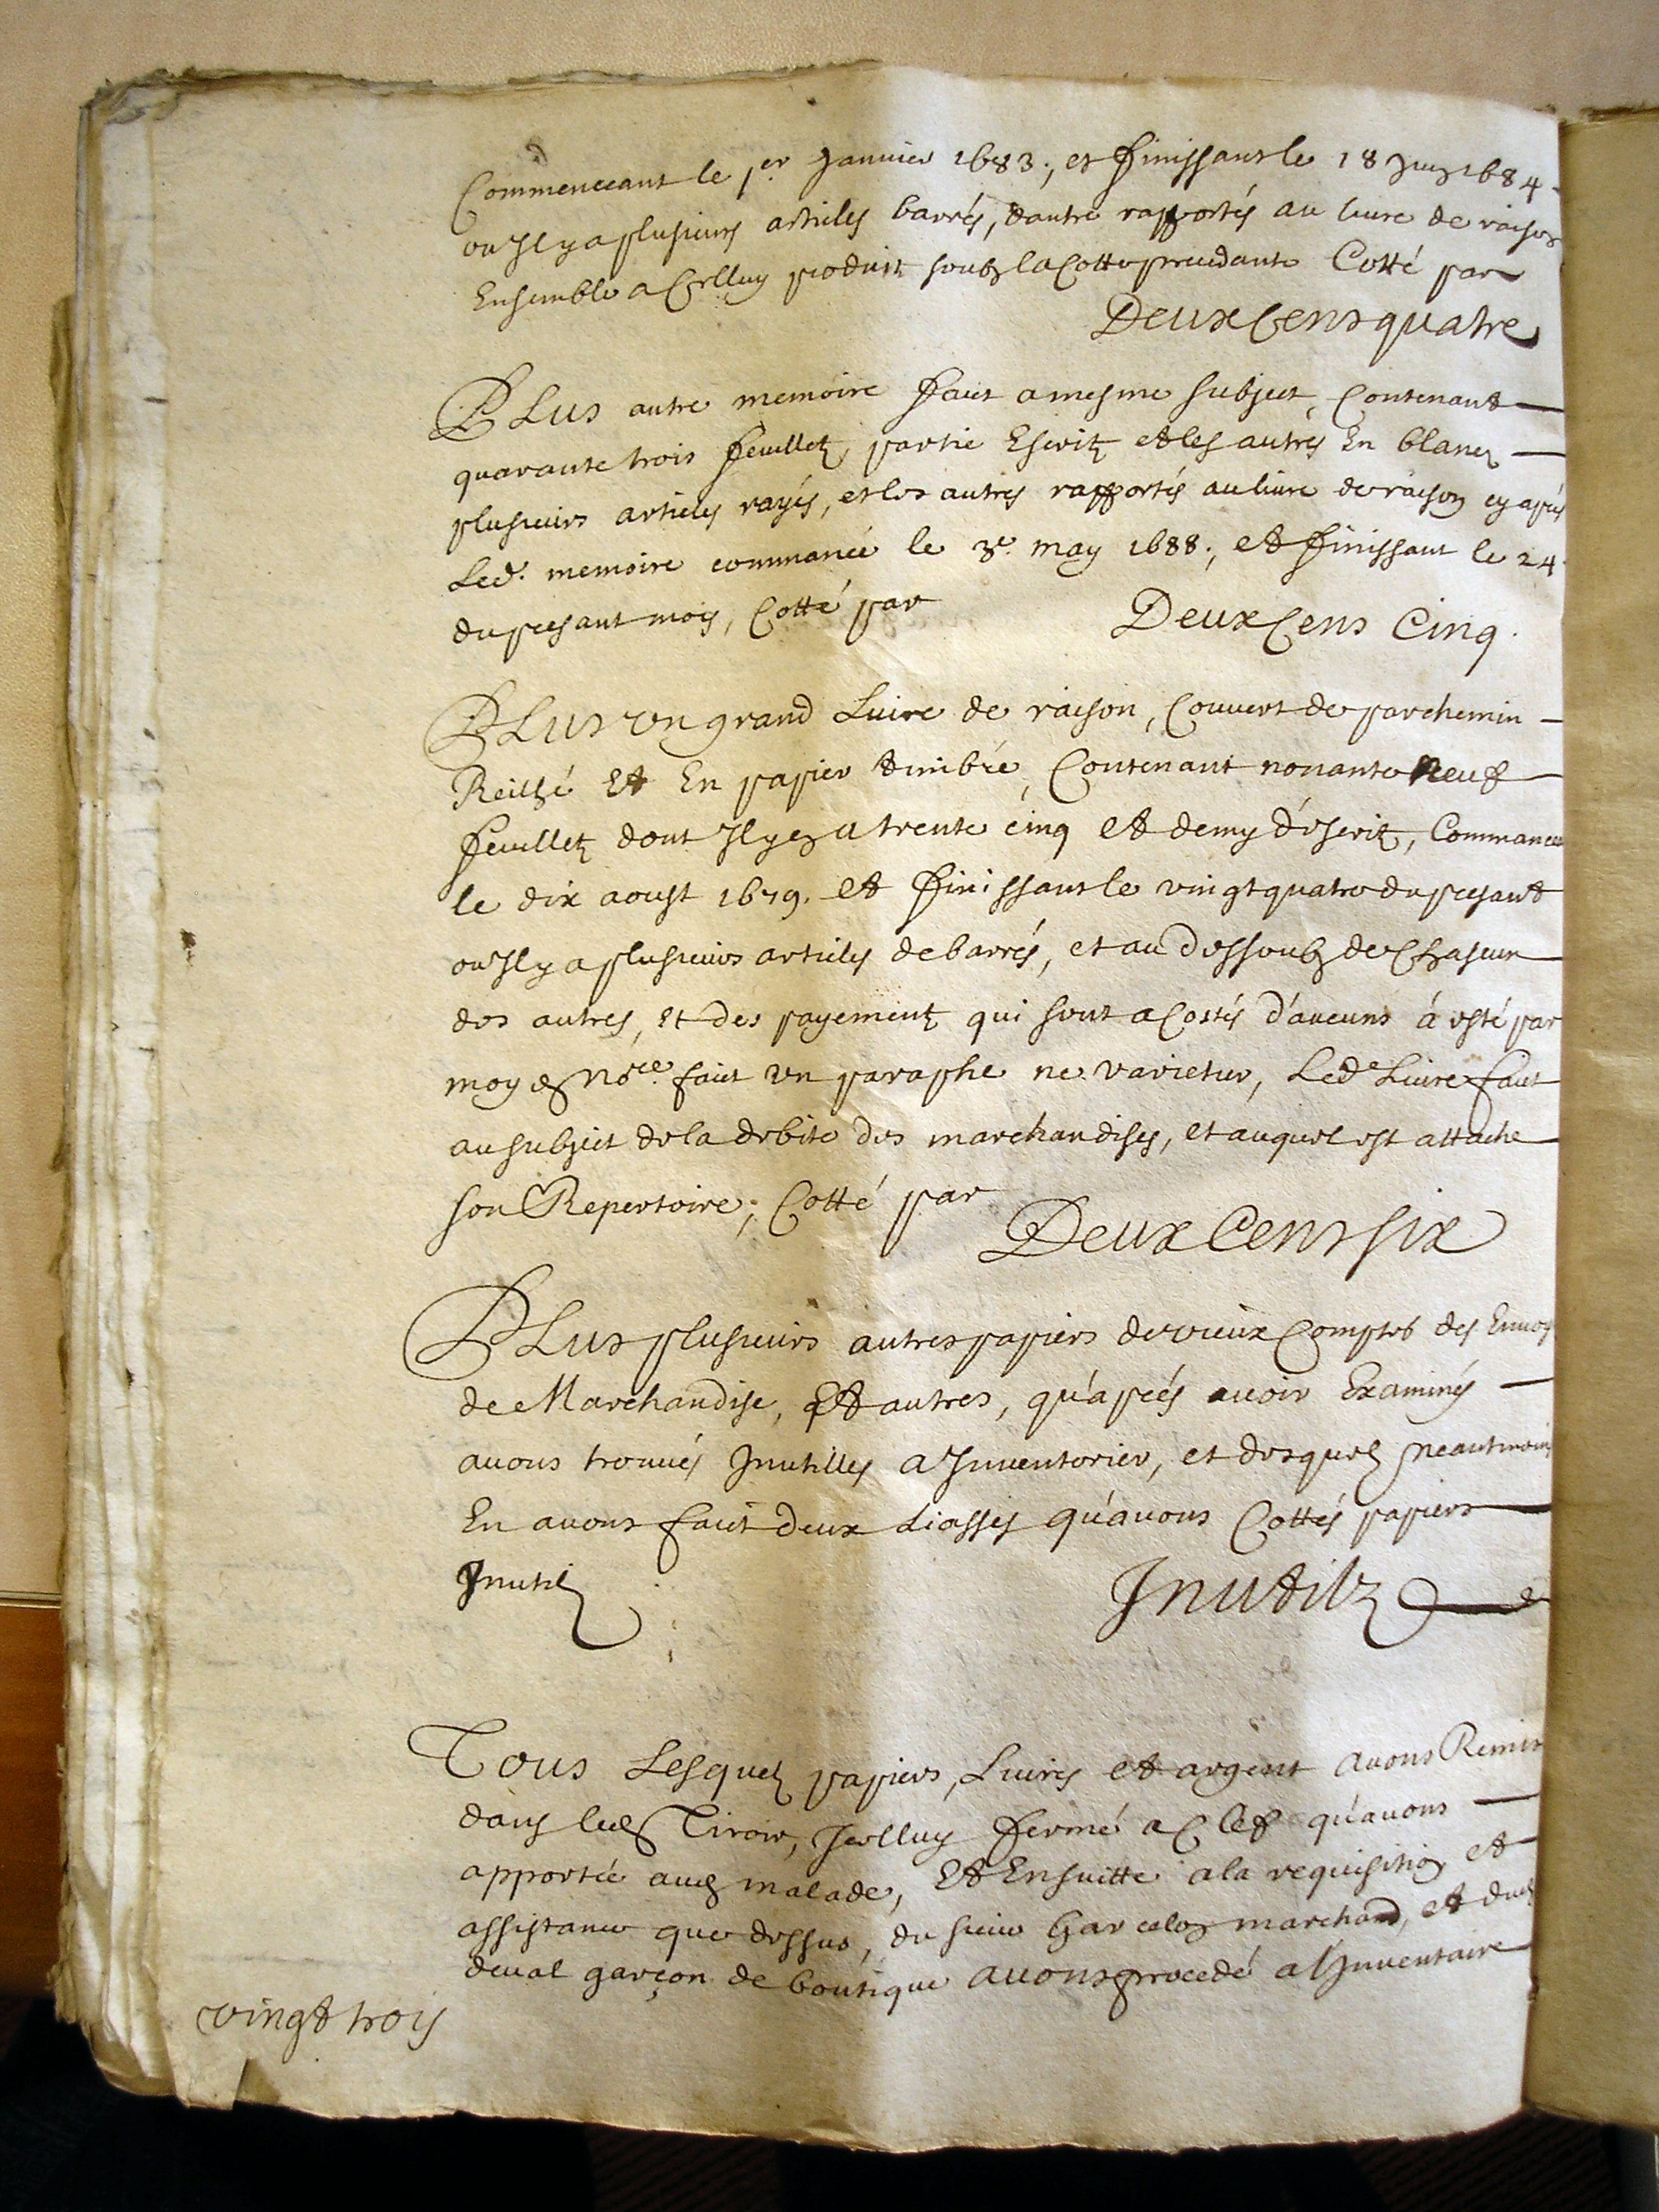 Commenceant le 1er Janvier 1683; et finissant le 18 Juin 1684
ou Jl y a plusieurs articles barrés, dautre rapportés au liure de raison
Ensemble a Celluy produit soubz la Cotte precedante Cotté par
Deux Cens quatre
PLus autre memoire faict a mesme subject, Contenant
quarante trois feuilletz partie Escritz et les autres En blancz
plusieurs articles rayés, et les autres rapportés au liure de raison cy apres
Led. memoire commancé le 3e. may 1688; et finissant le 24
du presant mois, Cotté par Deux Cens Cinq.
PLus vn grand Liure de raison, Couvert de parchemin
Reillié Et En papier timbré, Contenant nonante neuf
feuilletz dont Jl y en a trente cinq et demy d'escritz, Commancé
le dix aoust 1679. et finissant le vingt quatre du presant
ou Jl y a plusieurs articles debarrés, et au dessoubz de Chascun
des autres, et des payementz qui sont a Costés d'aucuns á esté par
moy d nore. faict vn paraphe ne varietur, Led Liure faict
au subject de la debite des marchandises, et auquel est attache
son Repertoire; Cotté par Deux Cens six
PLus plusieurs autres papiers de vieux Comptes des Enuoy
de Marchandise, et autres, qu'aprés auoir Examinés
auons trouués Jnutilles a Jnuentorier, et desquelz neautmoins
En auons faict deux Liasses qu'auons Cottés papiers
Jnutilz Jnutilz
Tous Lesquelz papiers, Liures et argent auons Remis
dans led Tiroir, Jcelluy fermé a Clef qu'auons
apportée aud malade, Et Ensuitte a la requisition et
assistance que dessus, du sieur marchand, et dud
deual garçon de boutique auons procedé a l'Jnuentaire
vingt trois